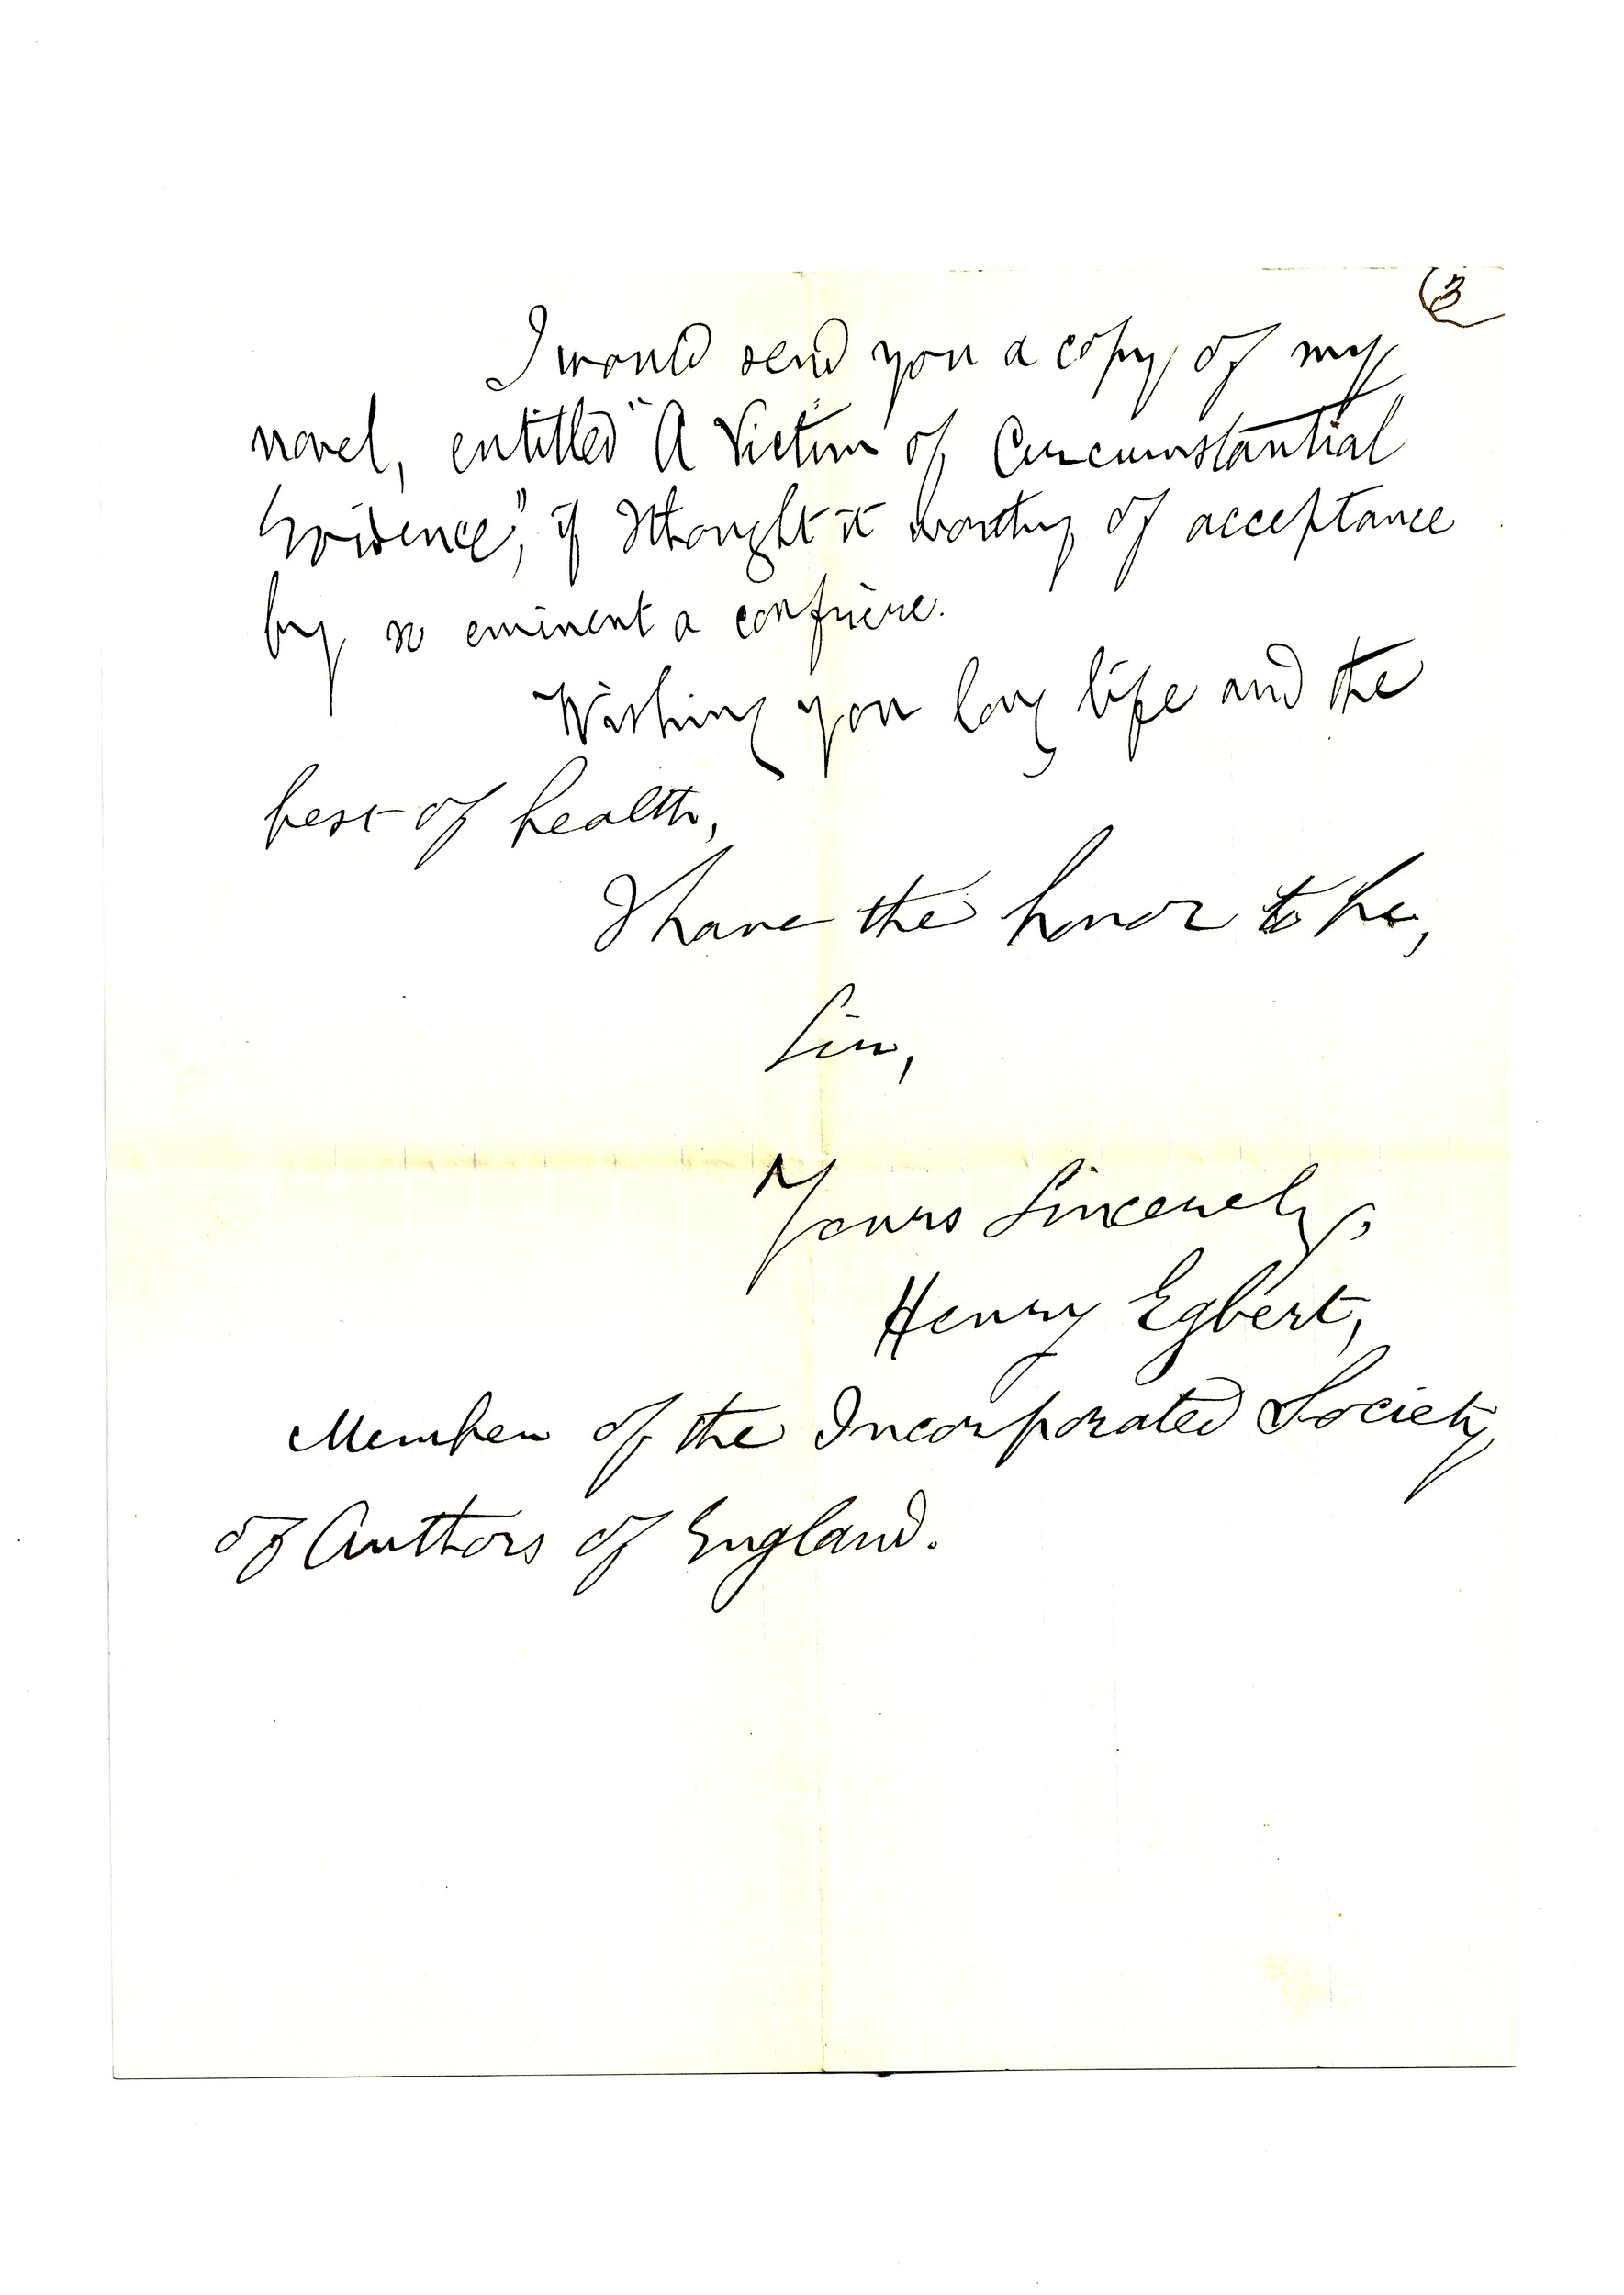 (3
I would send you a copy of my
novel, entitled "A Victim of Circumstantial
Evidence", if I thought it worthy of acceptance
by so eminent a confrère.
Wishing you long life and the
best of health,
I have the honor to be,
Sir,
Yours Sincerely,
Henry Egbert,
Member of the Incorporated Society
of Authors of England.